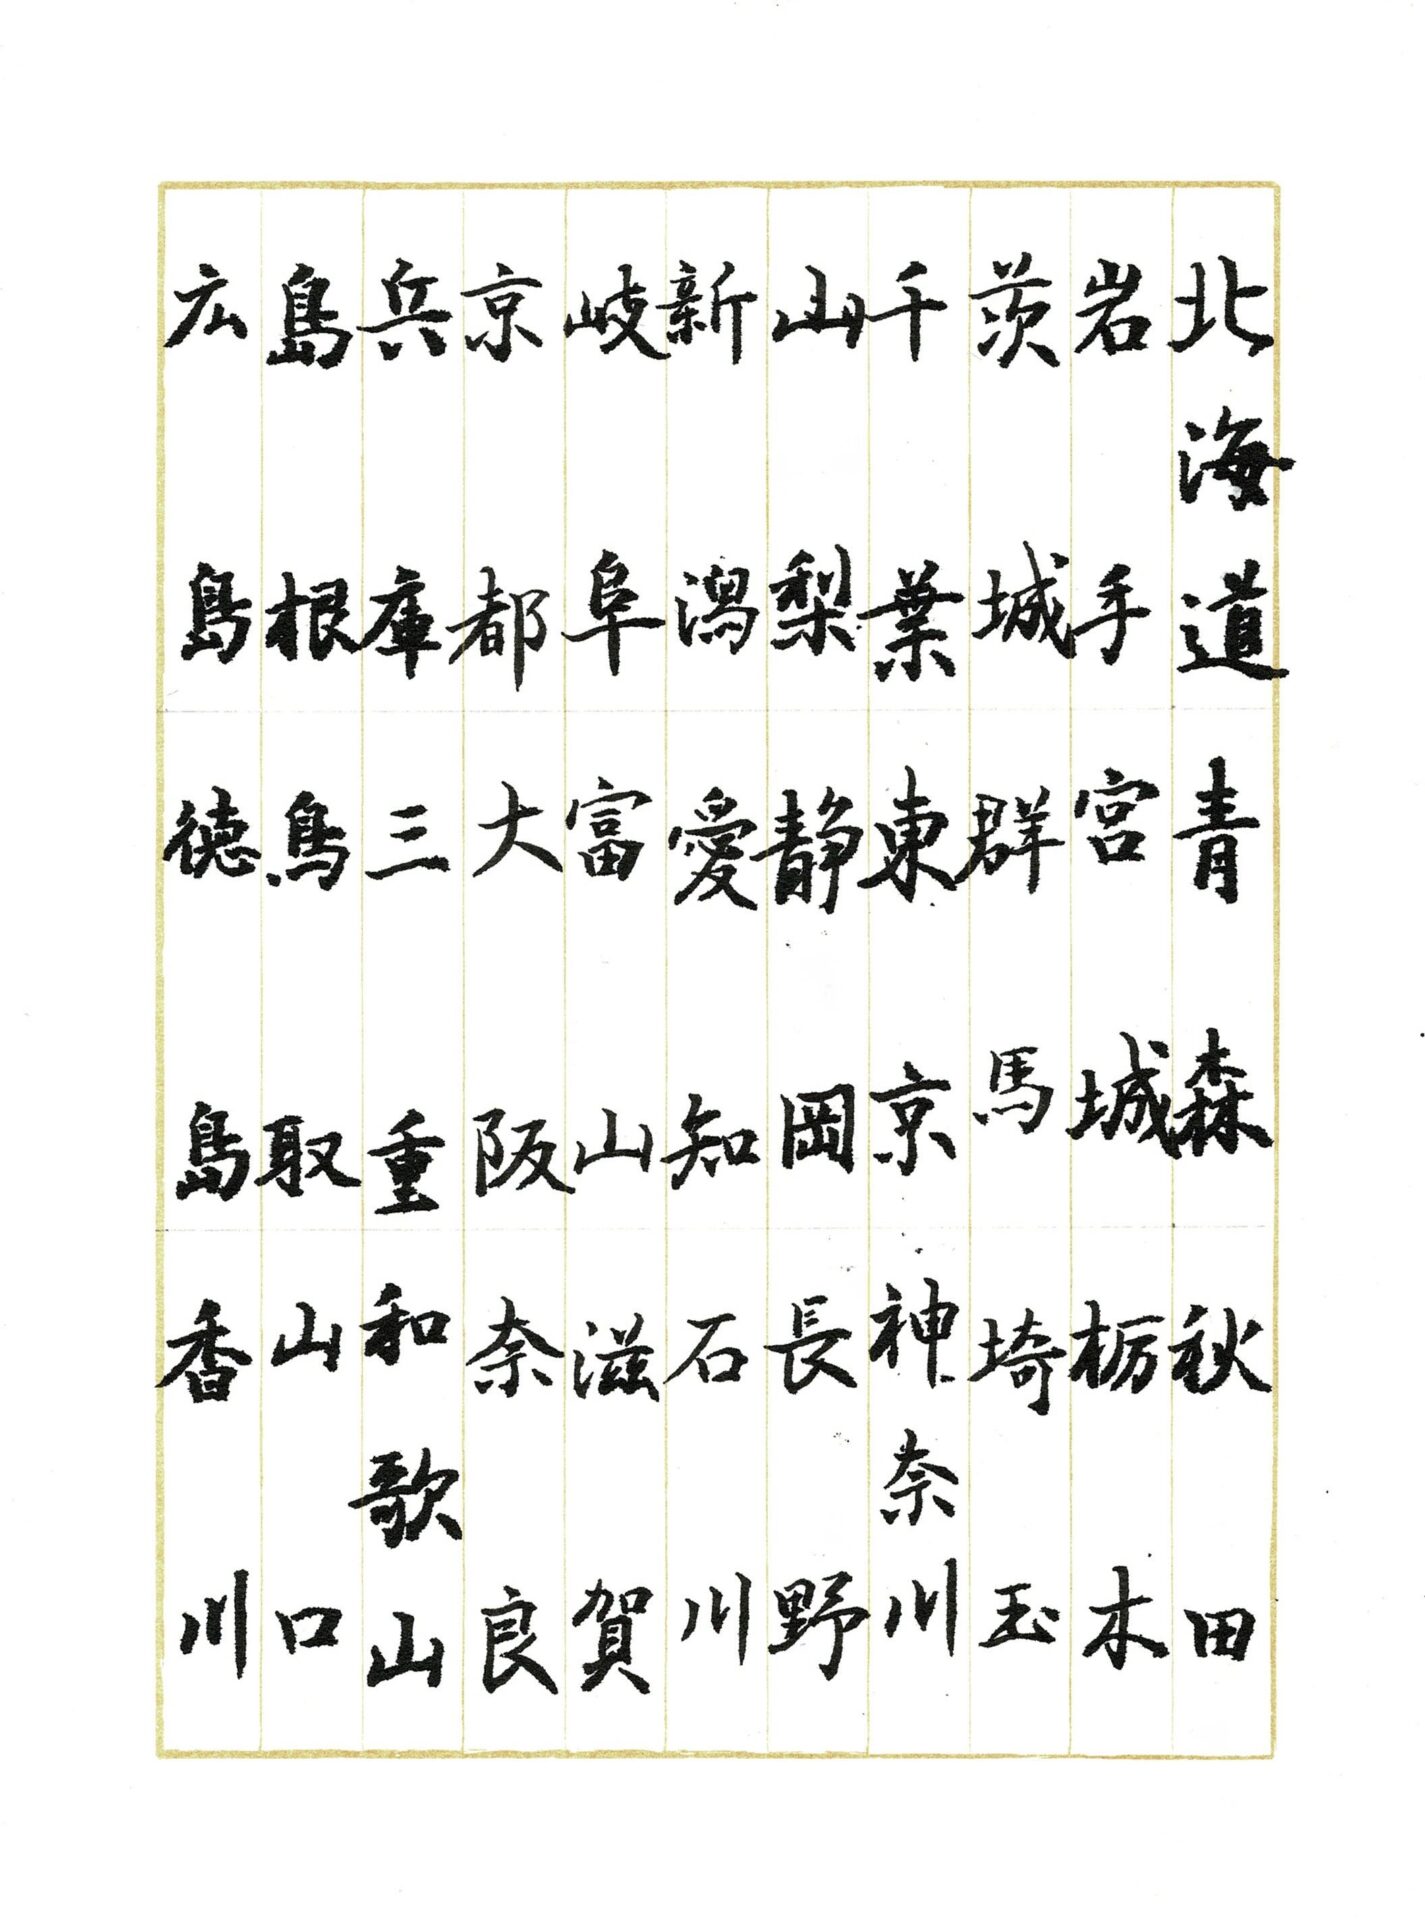 北海道 青森 秋田
岩手 宮城 栃木
茨城 群馬 埼玉
千葉 東京 神奈川
山梨 静岡 長野
新潟 愛知 石川
岐阜 富山 滋賀
京都 大阪 奈良
兵庫 三重 和歌山
島根 鳥取 山口
広島 徳島 香川